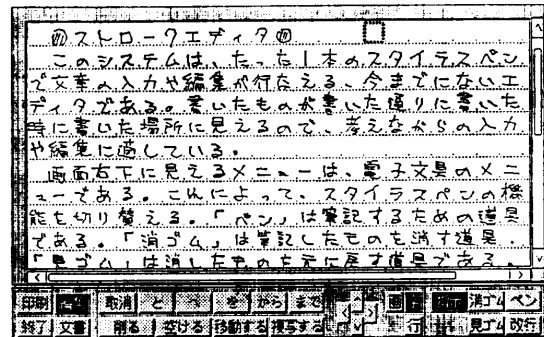 のストロークエディタの
このシステムは、たった1本のスタイラスペン
で文章の入力や編集が行なえる、今までにないエ
ディタである。書いたものが書いた通りに書いた
時に書いた場所に見えるので、考えながらの入力
や編集に適している。
画面右下に見えるメニューは、電子文具のメニ
ューである。これによって、スタイラスペンの機
能を切り替える。「ペン」は筆記するための道具
である。「消ゴム」は筆記したものを消す道具.
「見ゴム」は消したものを元に戻す道具である。
印刷 取消 と へ を から まで 画 行 消ゴム ペン
終了 文書 削る 空ける 移動する 複写する 行 見ゴム 改行